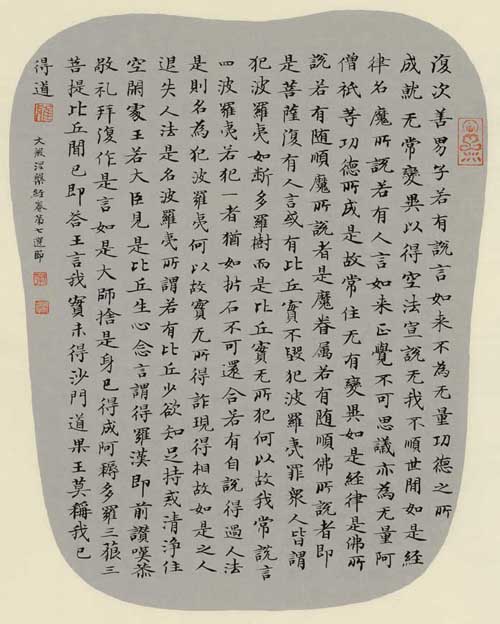 復次善男子若有說言如来不為无量功德之所
成就无常變異以得空法宣說无我不順世間如是經
律名魔所說若有人言如来正覺不可思議亦為无量阿
僧祇等功德所成是故常住无有變異如是經律是佛所
說若有随順魔所說者是魔眷属若有随順佛所說者即
是菩薩復有人言或有比丘實不毀犯波羅夷罪衆人皆謂
犯波羅夷如断多羅樹而是比丘實无所犯何以故我常說言
四波羅夷若犯一者猶如析石不可還合若有自說得過人法
是則名為犯波羅夷何以故實无所得詐現得相故如是之人
退失人法是名波羅夷所謂若有比丘少欲知足持戒清淨住
空閑處王若大臣見是比丘生心念言謂得羅漢即前讚嘆恭
敬礼拜復作是言如是大師捨是身已得成阿耨多羅三藐三
菩提比丘聞已即答王言我實未得沙門道果王莫稱我已
得道
大般涅槃經卷第七選節